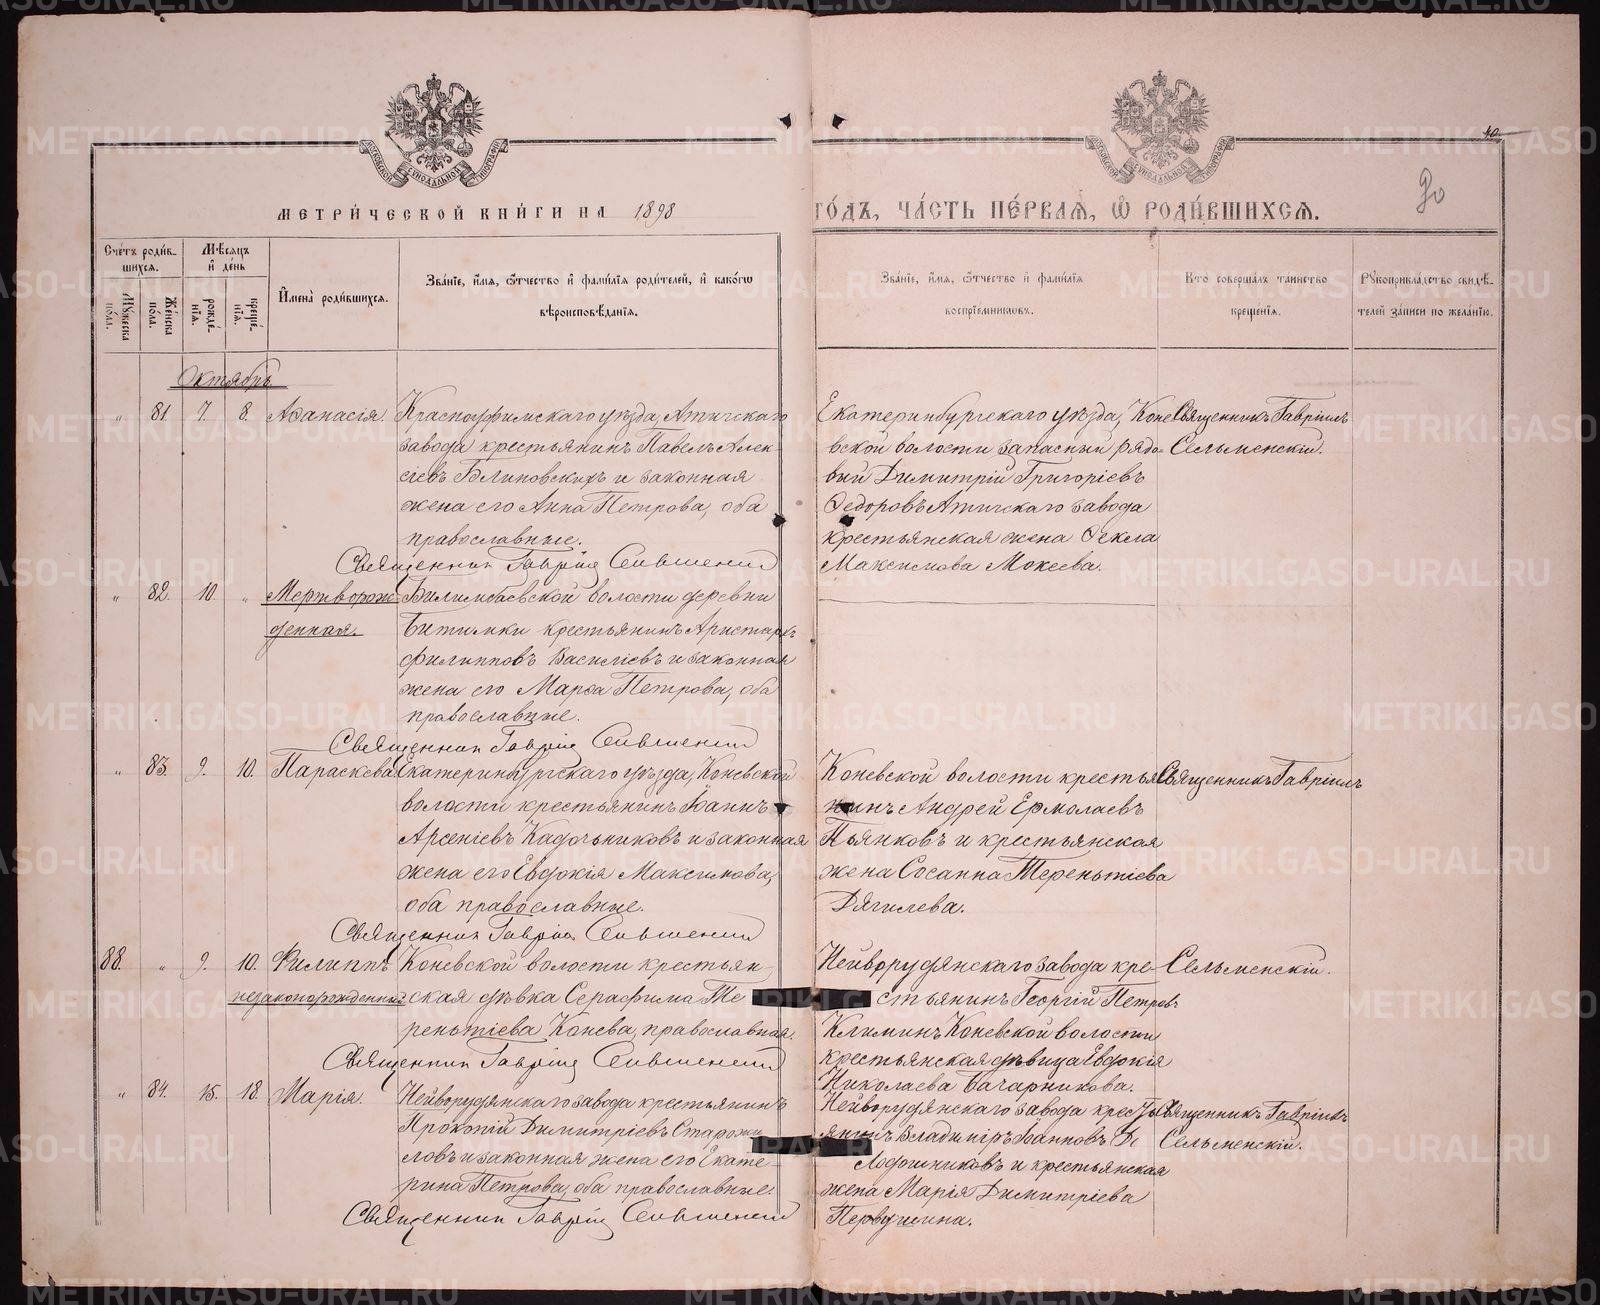 МЕТРИ́ЧЕСКОЙ КНИ́ГИ НА 1898
ГО́ДЪ, ЧА́СТЬ ПЕ́РВАѦ, Ѽ РОДИ́ВШИХСѦ.
40.
Сче́тъ роди́в-
шихсѧ.
Мѣ́сѧцъ
и҆ де́нь
Мꙋ́жеска по́ла.
Же́нска по́ла.
рожде́-
нїѧ.
креще́-
нїѧ.
И҆мена̀ роди́вшихсѧ.
Зва́нїе, и҆́мѧ, ѻ҆́тчество и҆ фами́лїѧ роди́телей, и҆ како́гѡ
вѣроисповѣ́данїѧ.
Зва́нїе, и҆́мѧ, ѻ҆́тчество и҆ фами́лїѧ
воспрїе́мникѡвъ.
Кто̀ соверша́лъ та́инство
креще́нїѧ.
Рꙋкоприкла́дство свидѣ́-
телей за́писи по жела́нїю.
Октябрь
„ 81. 7. 8. Аѳанасія. Красноуфимскаго уѣзда, Атигскаго
завода крестьянинъ Павелъ Алек-
сіевъ Блиновскихъ и законная
жена его Анна Петрова, оба
православные.
Священникъ Гавріилъ Сельменскій
Екатеринбургскаго уѣзда, Коне-
вской волости запасный рядо-
вый Димитрій Григоріевъ
Ѳедоровъ Атигскаго завода
крестьянская жена Ѳекла
Максимова Мокеева.
Священникъ Гавріилъ
Сельменскій.
„ 82. 10. „ Мертворож-
денная.
Билимбаевской волости деревни
Битимки крестьянинъ Аристархъ
Филипповъ Василіевъ и законная
жена его Марѳа Петрова, оба
православные.
Священникъ Гавріилъ Сельменскій
„ 83. 9. 10. Параскева Екатеринбургскаго уѣзда, Коневской
волости крестьянинъ Іоаннъ
Арсеніевъ Кадочниковъ и законная
жена его Евдокія Максимова,
оба православные.
Священникъ Гавріилъ Сельменскій
Коневской волости крестья-
нинъ Андрей Ермолаевъ
Пьянковъ и крестьянская
жена Сосанна Терентіева
Дягилева.
Священникъ Гавріилъ
88. „ 9. 10. Филиппъ
незаконорожденный
Коневской волости крестьян-
ская дѣвка Серафима Те
рентіева Конева, православная.
Священникъ Гавріилъ Сельменскій
Нейворудянскаго завода кре-
стьянинъ Георгій Петровъ
Климинъ Коневской волости
крестьянская дѣвица Евдокія
Николаева Бачарникова.
Сельменскій.
„ 84. 15. 18. Марія. Нейворудянскаго завода крестьянинъ
Прокопій Димитріевъ Старожи
ловъ и законная жена его Екате-
рина Петрова, оба православные.
Священникъ Гавріилъ Сельменскій
Нейворудянскаго завода крестья-
янинъ Владиміръ Іоанновъ
и крестьянская
жена Марія Димитріева
Первушина.
Священникъ Гавріилъ
Сельменскій.
METRIKI.GASO-URAL.RU